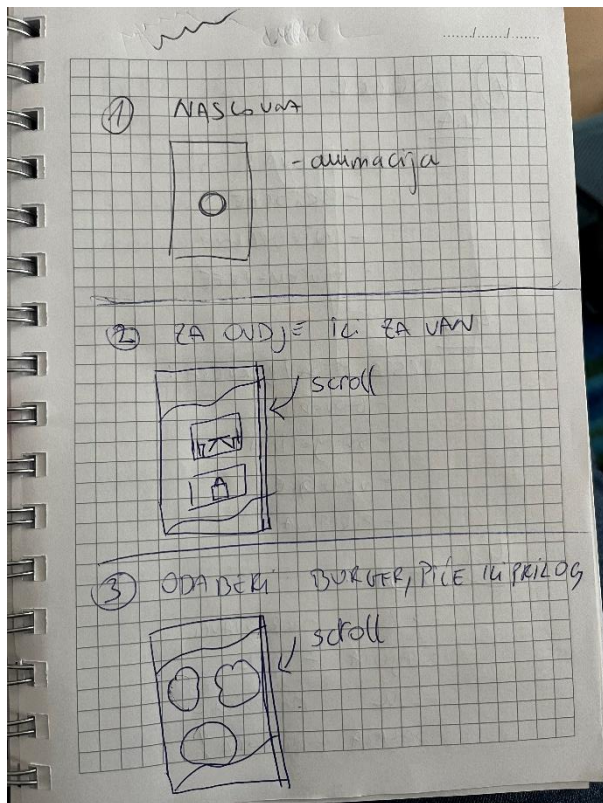 1 NASLOVNA
- animacija
2 ZA OVDJE ILI ZA VAN
scroll
3 ODABERI BURGER, PIĆE ILI PRILOG
scroll